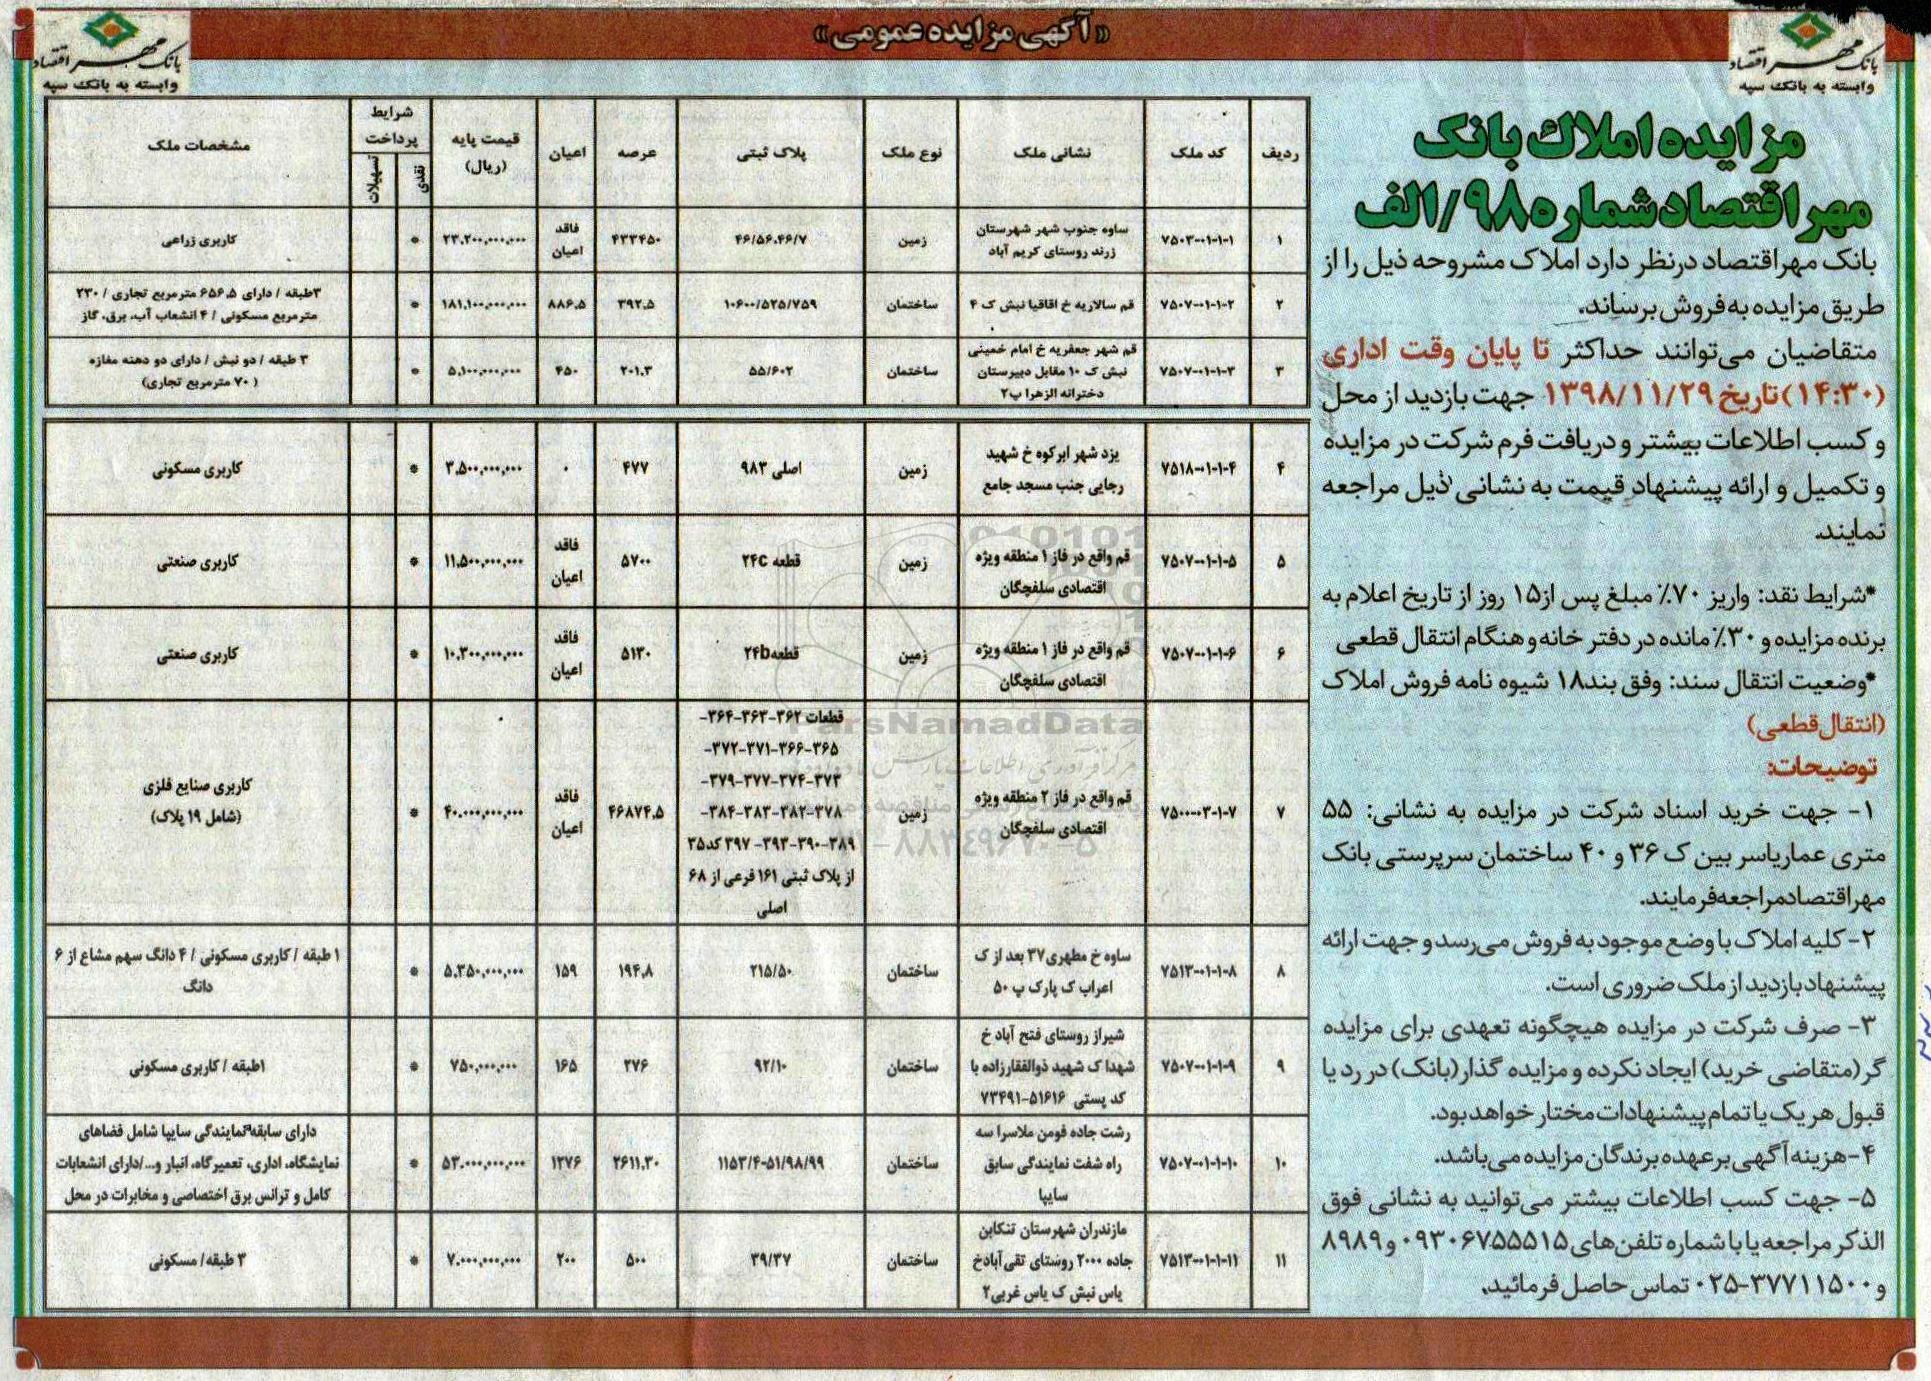 «آگهی مزایده عمومی»
بانک مهر اقتصاد
وابسته به بانک سپه
بانک مهر اقتصاد
وابسته به بانک سپه
مزایده املاک بانک
مهر اقتصاد شماره ۹۸/الف
بانک مهراقتصاد درنظر دارد املاک مشروحه ذیل را از
طریق مزایده به فروش برساند.
متقاضیان می‌توانند حداکثر تا پایان وقت اداری
(۱۴:۳۰) تاریخ ۱۳۹۸/۱۱/۲۹ جهت بازدید از محل
و کسب اطلاعات بیشتر و دریافت فرم شرکت در مزایده
و تکمیل و ارائه پیشنهاد قیمت به نشانی ذیل مراجعه
نمایند.
*شرایط نقد: واریز ۷۰٪ مبلغ پس از۱۵ روز از تاریخ اعلام به
برنده مزایده و ۳۰٪ مانده در دفتر خانه و هنگام انتقال قطعی
*وضعیت انتقال سند: وفق بند۱۸ شیوه نامه فروش املاک
(انتقال قطعی)
توضیحات:
۱- جهت خرید اسناد شرکت در مزایده به نشانی: ۵۵
متری عماریاسر بین ک ۳۶ و ۴۰ ساختمان سرپرستی بانک
مهراقتصادمراجعه‌فرمایند.
۲- کلیه املاک با وضع موجود به فروش می‌رسد و جهت ارائه
پیشنهاد بازدید از ملک ضروری است.
۳- صرف شرکت در مزایده هیچگونه تعهدی برای مزایده
گر(متقاضی خرید) ایجاد نکرده و مزایده گذار(بانک) در رد یا
قبول هر یک یا تمام پیشنهادات مختار خواهد بود.
۴-هزینه آگهی برعهده برندگان مزایده می‌باشد.
۵- جهت کسب اطلاعات بیشتر می‌توانید به نشانی فوق
الذکر مراجعه یا با شماره تلفن‌های ۰۹۳۰۶۷۵۵۵۱۵ و ۸۹۸۹
و ۳۷۷۱۱۵۰۰-۰۲۵ تماس حاصل فرمائید.
ردیف کد ملک نشانی ملک نوع ملک پلاک ثبتی عرصه اعیان قیمت پایه (ریال) شرایط پرداخت نقدی تسهیلات مشخصات ملک
۱ ۷۵۰۳-۰۱-۱-۱ ساوه جنوب شهر شهرستان زرند روستای کریم آباد زمین ۴۶/۵۶،۴۶/۷ ۴۳۳۴۵۰ فاقد اعیان ۲۳،۲۰۰،۰۰۰،۰۰۰ * کاربری زراعی
۲ ۷۵۰۷-۰۱-۱-۲ قم سالاریه خ اقاقیا نبش ک ۴ ساختمان ۱۰۶۰۰/۵۲۵/۷۵۹ ۳۹۲،۵ ۸۸۶،۵ ۱۸۱،۱۰۰،۰۰۰،۰۰۰ * ۳طبقه / دارای ۶۵۶،۵ مترمربع تجاری / ۲۳۰ مترمربع مسکونی / ۴ انشعاب آب، برق، گاز
۳ ۷۵۰۷-۰۱-۱-۳ قم شهر جعفریه خ امام خمینی نبش ک ۱۰ مقابل دبیرستان دخترانه الزهرا پ۲ ساختمان ۵۵/۶۰۲ ۲۰۱،۳ ۴۵۰ ۵،۱۰۰،۰۰۰،۰۰۰ * ۳ طبقه / دو نبش / دارای دو دهنه مغازه (۷۰ مترمربع تجاری)
۴ ۷۵۱۸-۰۱-۱-۴ یزد شهر ابرکوه خ شهید رجایی جنب مسجد جامع زمین اصلی ۹۸۳ ۴۷۷ ۰ ۳،۵۰۰،۰۰۰،۰۰۰ * کاربری مسکونی
۵ ۷۵۰۷-۰۱-۱-۵ قم واقع در فاز ۱ منطقه ویژه اقتصادی سلفچگان زمین قطعه ۲۴c ۵۷۰۰ فاقد اعیان ۱۱،۵۰۰،۰۰۰،۰۰۰ * کاربری صنعتی
۶ ۷۵۰۷-۰۱-۱-۶ قم واقع در فاز ۱ منطقه ویژه اقتصادی سلفچگان زمین قطعه۲۴b ۵۱۳۰ فاقد اعیان ۱۰،۳۰۰،۰۰۰،۰۰۰ * کاربری صنعتی
۷ ۷۵۰۰-۰۳-۱-۷ قم واقع در فاز ۲ منطقه ویژه اقتصادی سلفچگان زمین قطعات ۳۶۲-۳۶۳-۳۶۴-۳۶۵-۳۶۶-۳۷۱-۳۷۲-۳۷۳-۳۷۴-۳۷۷-۳۷۹-۳۷۸-۳۸۲-۳۸۳-۳۸۴-۳۸۹-۳۹۰-۳۹۳- ۳۹۷ کد۳۵ از پلاک ثبتی ۱۶۱ فرعی از ۶۸ اصلی ۴۶۸۷۴،۵ فاقد اعیان ۴۰،۰۰۰،۰۰۰،۰۰۰ * کاربری صنایع فلزی (شامل ۱۹ پلاک)
۸ ۷۵۱۳-۰۱-۱-۸ ساوه خ مطهری۳۷ بعد از ک اعراب ک پارک پ ۵۰ ساختمان ۲۱۵/۵۰ ۱۹۴،۸ ۱۵۹ ۵،۳۵۰،۰۰۰،۰۰۰ * ۱ طبقه / کاربری مسکونی / ۴ دانگ سهم مشاع از ۶ دانگ
۹ ۷۵۰۷-۰۱-۱-۹ شیراز روستای فتح آباد خ شهدا ک شهید ذوالفقارزاده با کد پستی ۵۱۶۱۶-۷۳۴۹۱ ساختمان ۹۲/۱۰ ۲۷۶ ۱۶۵ ۷۵۰،۰۰۰،۰۰۰ * ۱طبقه / کاربری مسکونی
۱۰ ۷۵۰۷-۰۱-۱-۱۰ رشت جاده فومن ملاسرا سه راه شفت نمایندگی سابق سایپا ساختمان ۱۱۵۳/۴-۵۱/۹۸/۹۹ ۲۶۱۱،۳۰ ۱۲۷۶ ۵۳،۰۰۰،۰۰۰،۰۰۰ * دارای سابقه نمایندگی سایپا شامل فضاهای نمایشگاه، اداری، تعمیرگاه، انبار و.../دارای انشعابات کامل و ترانس برق اختصاصی و مخابرات در محل
۱۱ ۷۵۱۳-۰۱-۱-۱۱ مازندران شهرستان تنکابن جاده ۲۰۰۰ روستای تقی آبادخ یاس نبش ک یاس غربی۲ ساختمان ۳۹/۳۷ ۵۰۰ ۲۰۰ ۷،۰۰۰،۰۰۰،۰۰۰ * ۳ طبقه/ مسکونی
ParsNamadData